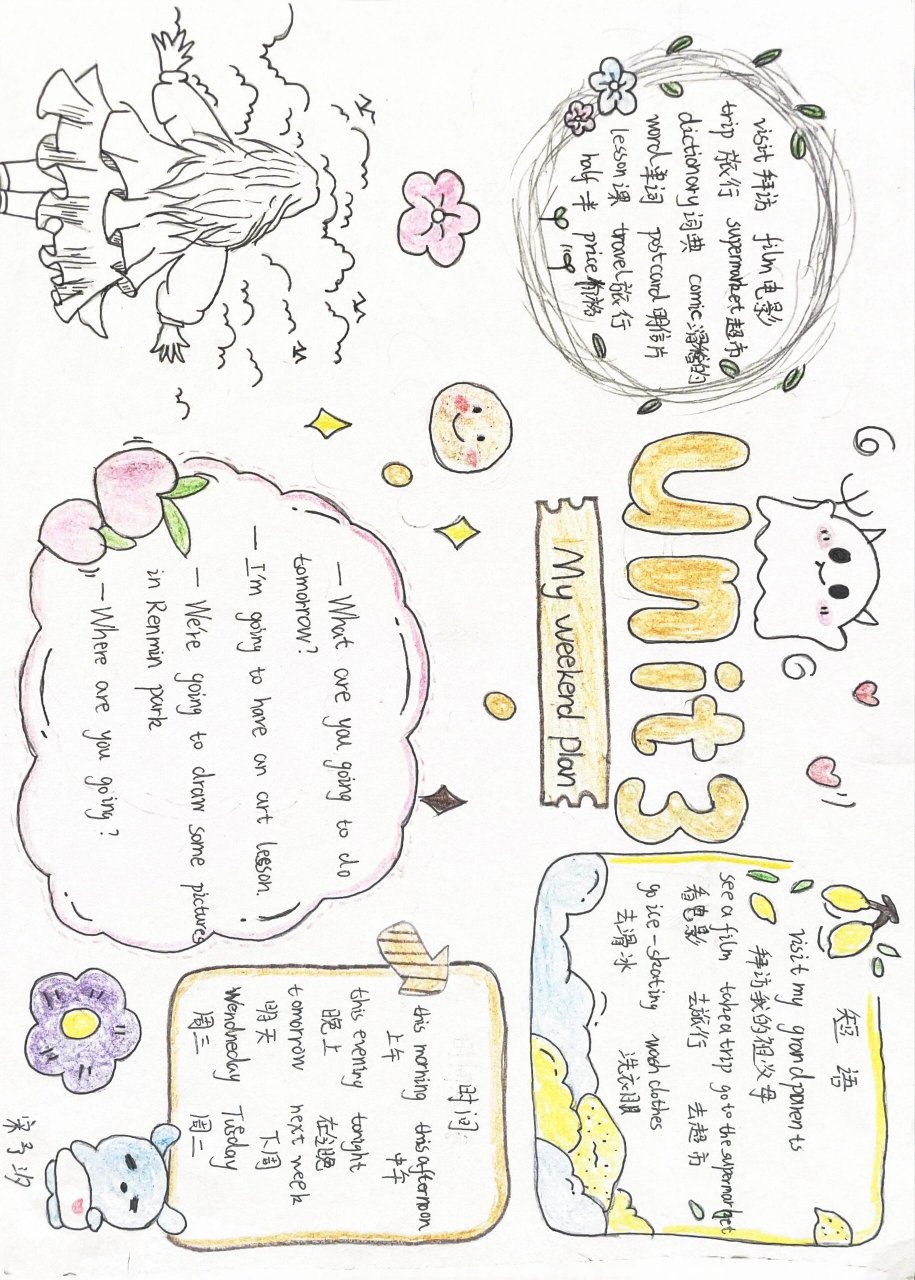 visit 拜访 film 电影
trip 旅行 supermarket 超市
dictionary 词典 comic 滑稽的
word 单词 postcard 明信片
lesson 课 travel 旅行
half 半 price 价格
unit 3
My weekend plan
短语
visit my grandparents
拜访我的祖父母
see a film take a trip go to the supermarket
看电影 去旅行 去超市
go ice-skating wash clothes
去滑冰 洗衣服
— What are you going to do
tomorrow?
— I'm going to have an art lesson.
— We're going to draw some pictures
in Renmin park
— Where are you going?
时间:
this morning this afternoon
上午 中午
this evening tonight
晚上 在今晚
tomorrow next week
明天 下周
Wendneday Tuesday
周三 周二